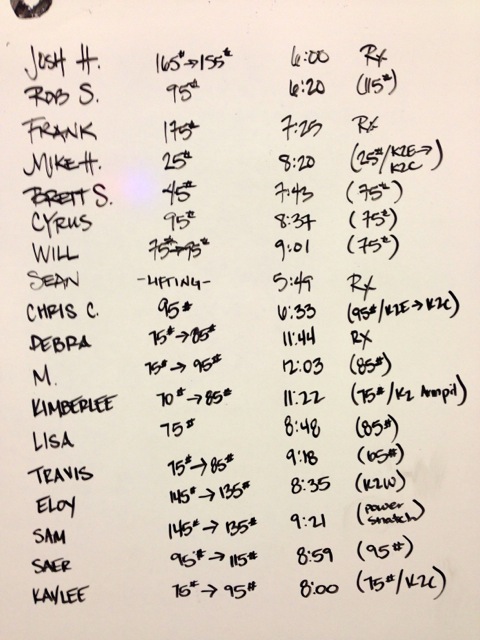 JOSH H. 165# → 155# 6:00 Rx
ROB S. 95# 6:20 (115#)
FRANK 175# 7:25 Rx
MIKE H. 25# 8:20 (25#/K2E → K2C)
BRETT S. 45# 7:43 (75#)
CYRUS 95# 8:37 (75#)
WILL 75# → 95# 9:01 (75#)
SEAN -LIFTING- 5:49 Rx
CHRIS C. 95# 6:33 (95#/K2E → K2C)
DEBRA 75# → 85# 11:44 Rx
M. 75# → 95# 12:03 (85#)
KIMBERLEE 70# → 85# 11:22 (75#/K2 Armpit)
LISA 75# 8:48 (85#)
TRAVIS 75# → 85# 9:18 (65#)
ELOY 145# → 135# 8:35 (K2W)
SAM 145# → 135# 9:21 (power snatch)
SAER 95# → 115# 8:59 (95#)
KAYLEE 75# → 95# 8:00 (75#/K2C)